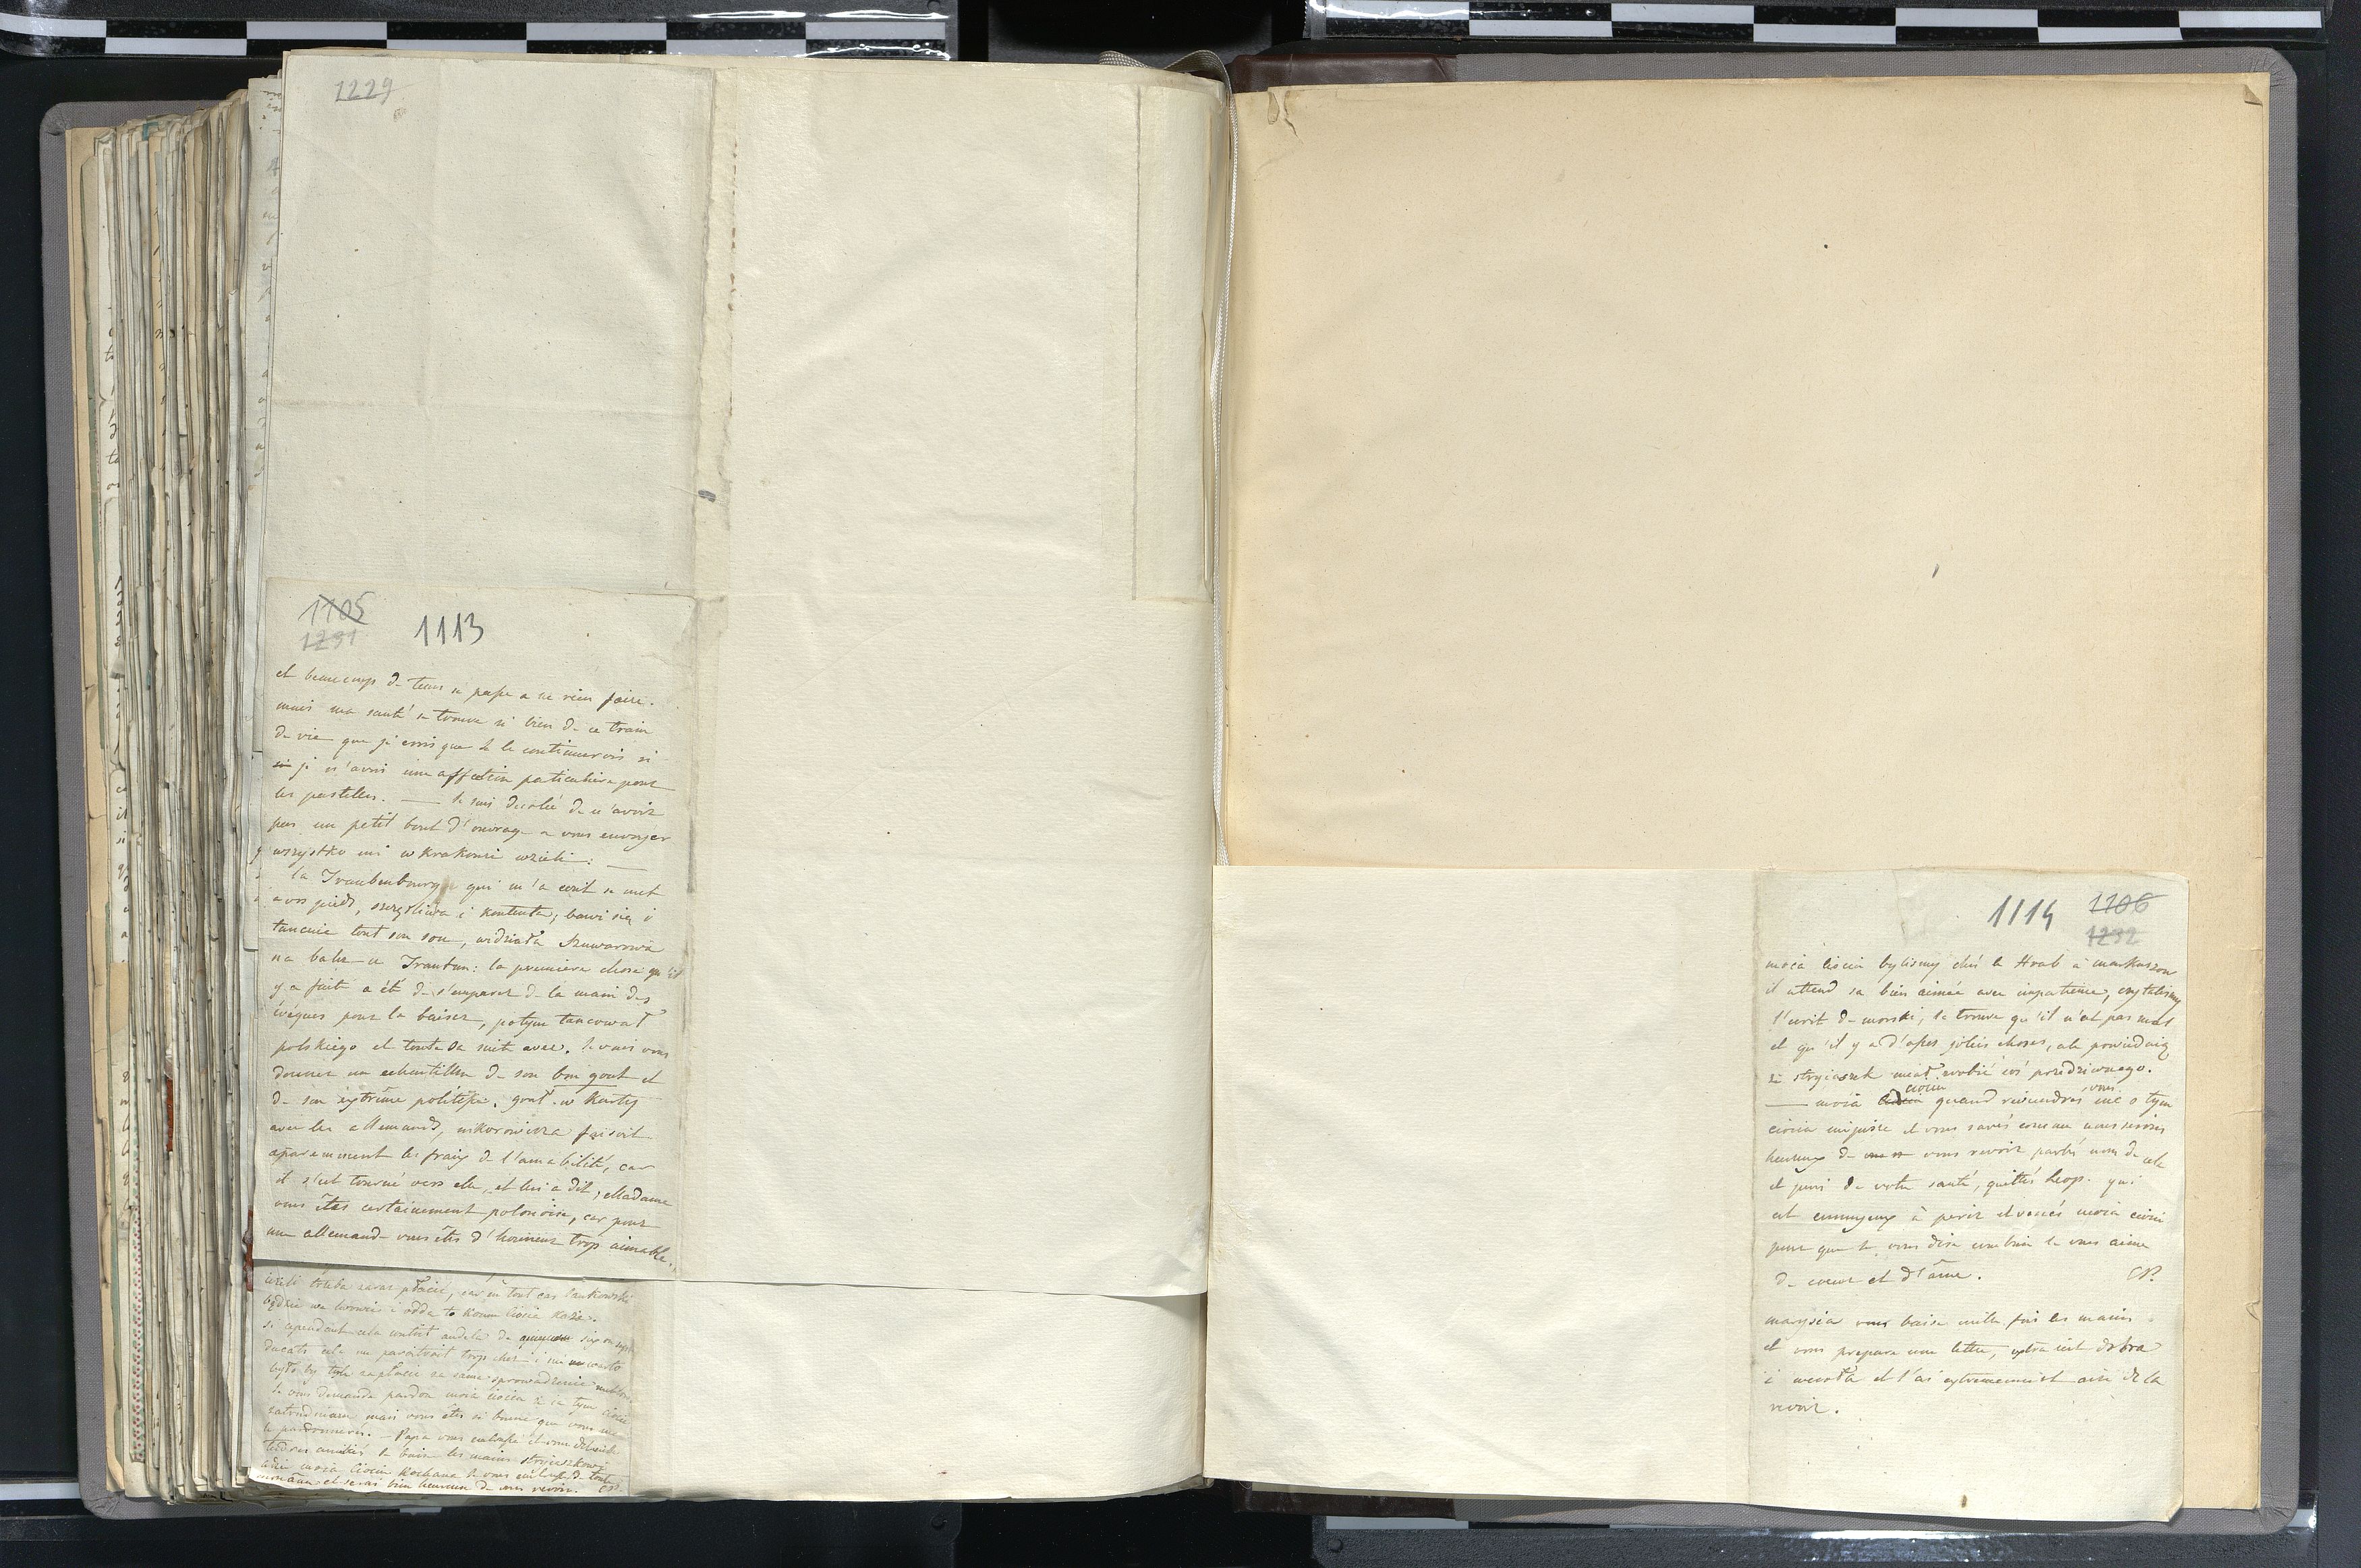 1229
1105
1231
1113
et beaucoup de tems se passe a ne rien faire.
mais ma santé se trouve si bien de ce train
de vie que je crois que je le continuerois si
si je n'avois une affection particulière pour
les pastelles. — Je suis desolée de n'avoir
pas un petit bout d'ouvrage a vous envoyer
wszystko mi w Krakowie wzieli: —
la Traubenbourg qui m'a ecrit se met
a vos pieds, szczęśliwa i kontenta; bawi się i
tancuie tout son sou, widziała Szuwarowa
na balu u Trautm: la première chose qu'il
y a faite a été de s'emparer de la main des
évêques pour la baiser, potym tancował
polskiego et toute sa suite avec. Je vais vous
donner un echantillon de son bon gout et
de son extrême politesse. grał w Karty
avec les allemands, faisoit
aparemment les fraix de l'amabilité, car
il s'est tourné vers elle, et lui a dit; Madame
vous êtes certainement polonoise, car pour
une allemande vous êtes d'honneur trop aimable.
ieżeli trzeba zaraz płacić, car en tout cas Jankowski
będzie we Lwowie i odda to komu Ciocia każe.
si cependant cela coutoit audela de six ou sept
ducats cela me paroitroit trop cher i nie warto
było by tyle zapłacić za same sprowadzenie
Je vous demande pardon moia Ciocia że ia tym Ciocie
zatrudniam mais vous êtes si bonne que vous me
le pardonnerés. — Papa vous embrasse et vous dit mille
tendres amitiés je baise les mains stryiaszkowi
moia Ciociu Kochana je vous embrasse de toute
mon âme et serai bien heureuse de vous revoir. CP.
1114
1106
1232
moia Ciociu bylismy chés le Hrab à Markuszow
il attend sa bien aimée avec impatience, czytalismy
l'ecrit de Morski, je trouve qu'il n'est pas mal
et qu'il y a d'asses jolies choses, ale powiedaią
że stryiaszek miał zrobić coś przedziwnego.
— moia ciociu quand reviendrés vous nic o tym
ciocia nie pisze et vous savés comme nous serons
heureux de vous revoir parlés nous de cela
et puis de votre santé, quittés Leop. qui
est ennuyeux à perir et venés moia ciociu
pour que je vous dise combien je vous aime
de coeur et d'âme. CP.
marysia vous baise mille fois les mains
et vous prepare une lettre, extra iest dobra
i wesoła et j'ai extremement aise de la
revoir.